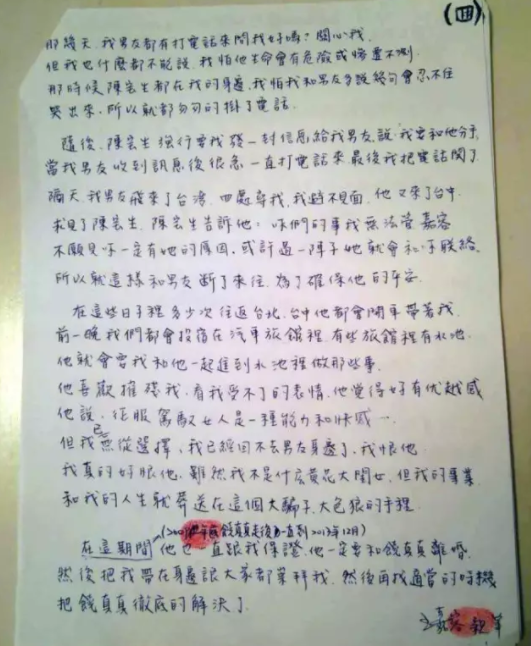 (四)
那幾天,我男友都有打電話來問我好嗎?関心我.
但我也什麼都不能說,我怕他生命會有危險或慘遭不測.
那時候陳宏生都在我的身邊,我怕我和男友多說幾句會忍不住
哭出來,所以就都匆匆的掛了電話.
隨後,陳宏生強行要我發一封信息給我男友,說:我要和他分手,
當我男友收到訊息後很急一直打電話來最後我把電話関了.
隔天,我男友飛來了台湾,四處尋我,我避不見面,他又來了台中
求見了陳宏生,陳宏生告訴他:你們的事我無法管,嘉容
不願見你一定有她的原因,或許過一陣子她就會和你联絡.
所以就這樣和男友斷了來往,為了確保他的平安.
在這些日子裡多少次往返台北.台中他都會開車帶著我.
前一晚我們都會投宿在汽車旅館裡.有些旅館裡有水池.
他就會要我和他一起進到水池裡做那些事.
他喜歡摧殘我.看我受不了的表情,他覺得好有优越感
他說:征服駕馭女人是一種能力和快感.
但我已無從選擇,我已經回不去男友身邊了,我恨他.
我真的好恨他,雖然我不是什広黄花大閨女,但我的事業
和我的人生就葬送在這個大騙子,大色狼的手裡.
(2011年底 錢真真走後 一直到2013年12月)
在這期間他也一直跟我保證,他一定會和錢真真離婚.
然後把我帶在身邊讓大家都崇拜我.然後再找適當的時機
把錢真真徹底的解決了.
嘉容 親筆